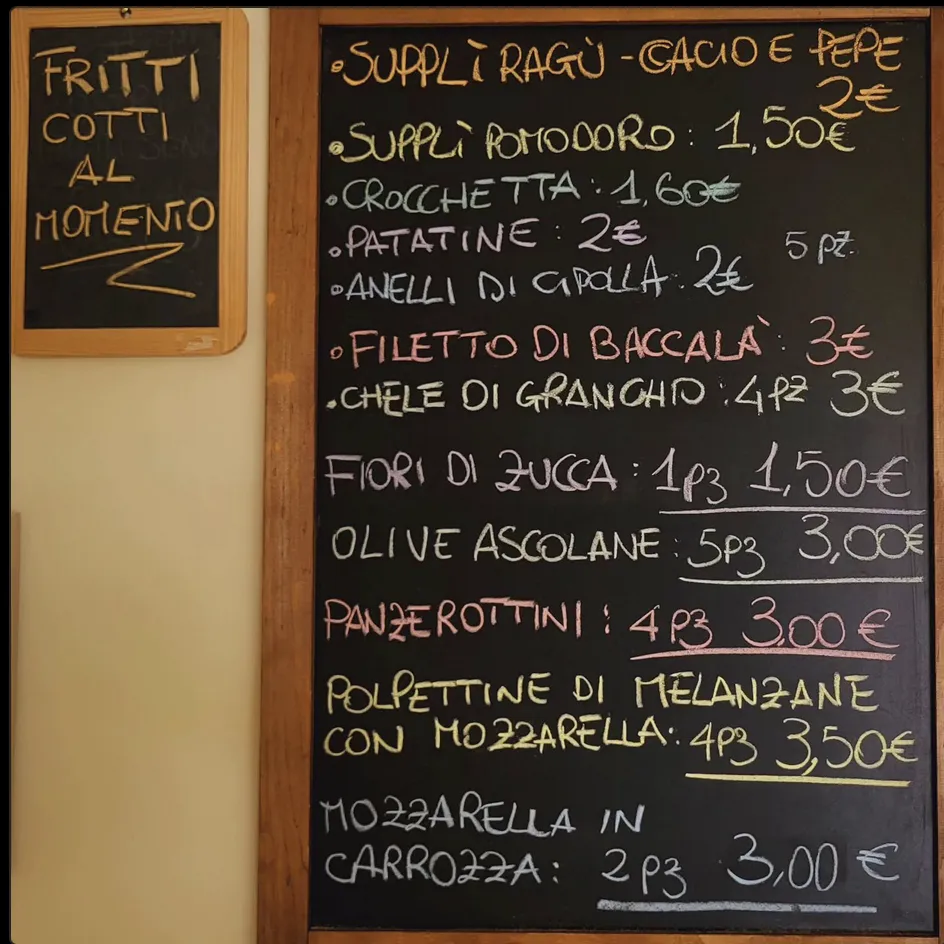 FRITTI
COTTI
AL
MOMENTO
•SUPPLÌ RAGÙ - CACIO E PEPE
2€
•SUPPLÌ POMODORO: 1,50€
•CROCCHETTA: 1,60€
•PATATINE: 2€
•ANELLI DI CIPOLLA: 2€ 5 PZ.
•FILETTO DI BACCALÀ: 3€
•CHELE DI GRANCHIO: 4PZ 3€
FIORI DI ZUCCA: 1PZ 1,50€
OLIVE ASCOLANE: 5PZ 3,00€
PANZEROTTINI: 4PZ 3,00€
POLPETTINE DI MELANZANE
CON MOZZARELLA: 4PZ 3,50€
MOZZARELLA IN
CARROZZA: 2PZ 3,00€